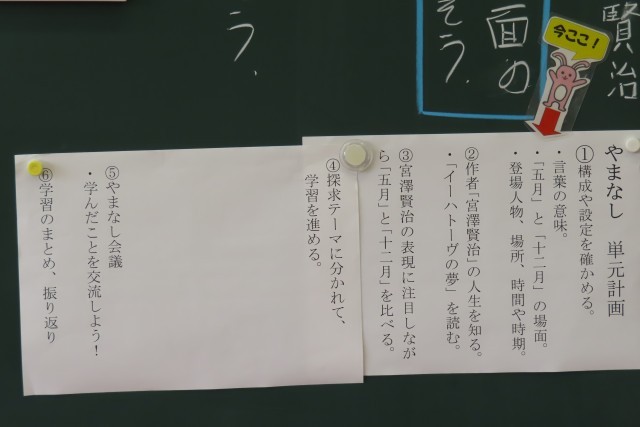 賢治
面の
そう
う.
今ここ！
やまなし　単元計画
①構成や設定を確かめる。
・言葉の意味。
・「五月」と「十二月」の場面。
・登場人物、場所、時間や時期。
②作者「宮澤賢治」の人生を知る。
・「イーハトーヴの夢」を読む。
③宮澤賢治の表現に注目しなが
ら「五月」と「十二月」を比べる。
④探求テーマに分かれて、
学習を進める。
⑤やまなし会議
・学んだことを交流しよう！
⑥学習のまとめ、振り返り